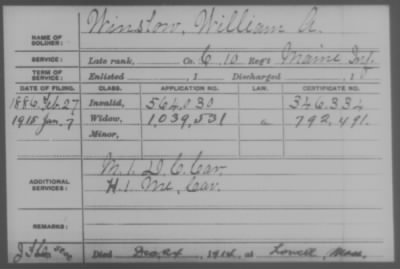 NAME OF SOLDIER: Winslow, William A.
SERVICE: Late rank, Co. C, 10 Reg't Maine Inf.
TERM OF SERVICE: Enlisted , 1 Discharged , 1
DATE OF FILING. CLASS. APPLICATION NO. LAW. CERTIFICATE NO.
1886. Feb. 27 Invalid, 564.030 346.334
1915 Jan. 7 Widow, 1.039.531 a 792.491.
Minor,
ADDITIONAL SERVICES: M. 1. D. C. Cav.
H. 1. Me. Cav.
REMARKS:
Died Dec. 24, 1914, at Lowell, Mass.